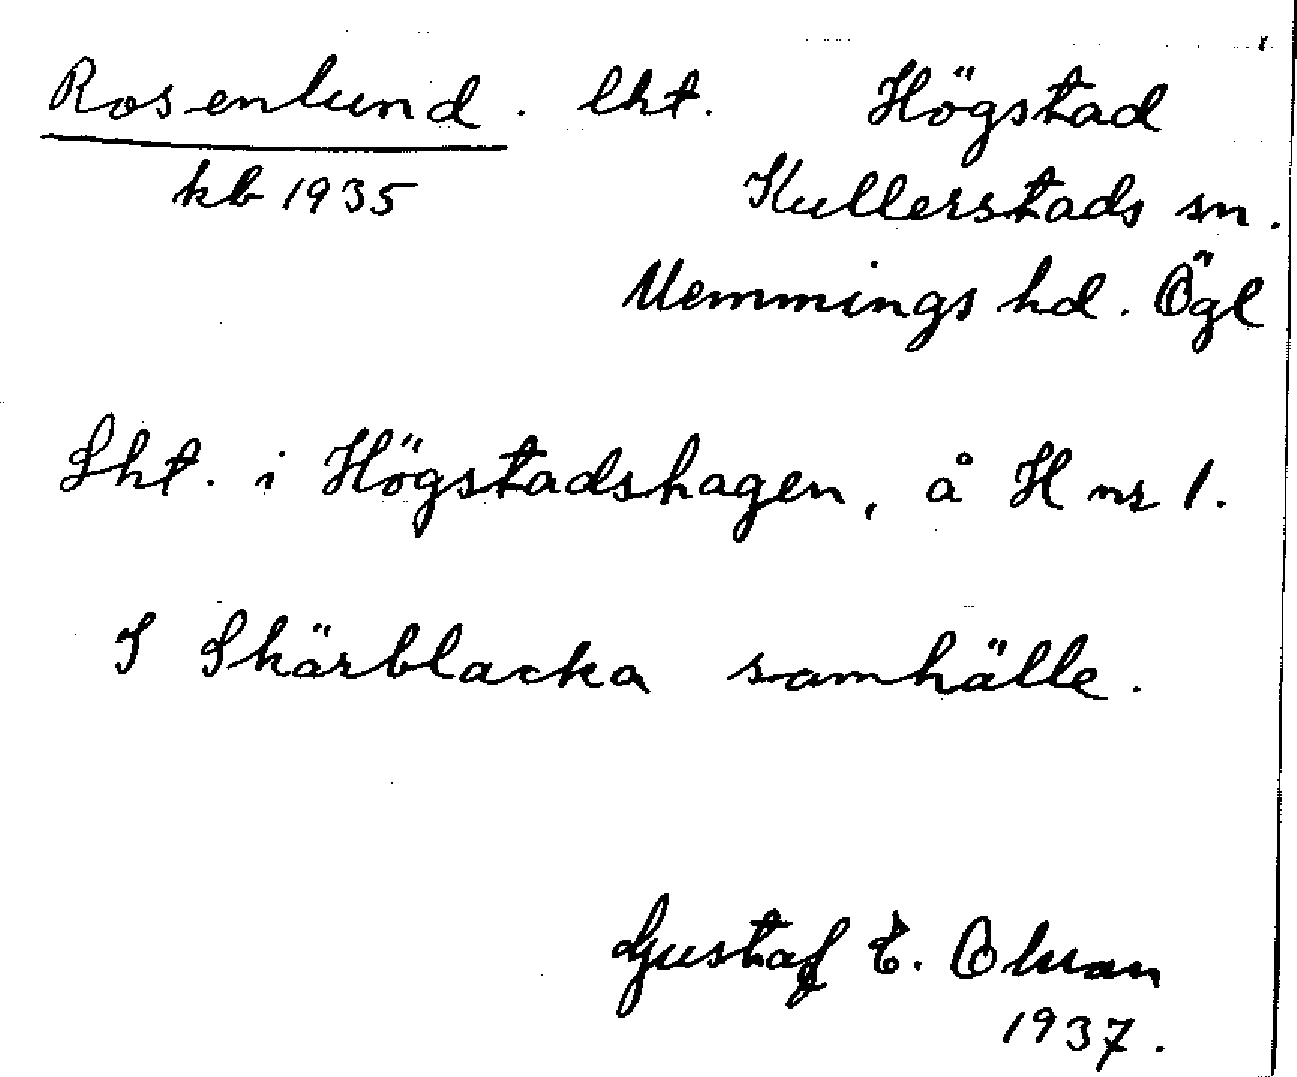 Rosenlund. lht. Högstad
kb 1935 Kullerstads sn.
Memmings hd. Ögl
Lht. i Högstadshagen, å H nr 1.
I Skärblacka samhälle.
Gustaf E. Olman
1937.